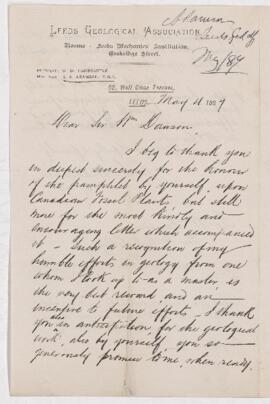 Adamson
LEEDS GEOLOGICAL ASSOCIATION.
Leeds Geol
Rooms - Leeds Mechanics' Institution,
Cookridge Street.
May/87
52, Well Close Terrace,
Leeds May 11 1887
Dear Sir Wm Dawson.
I beg to thank you
in deepest sincerity, for the honour
of the pamphlet by yourself, upon
Canadian Fossil Plants, but still
more for the most kindly and
encouraging letter which accompanied
it - Such a recognition of my
humble efforts in geology from one
whom I look up to as a master, is
the very best reward, and an
incentive to future efforts. I thank
you also in anticipation, for the geological
work, also by yourself, you so
generously promise to me, when ready.